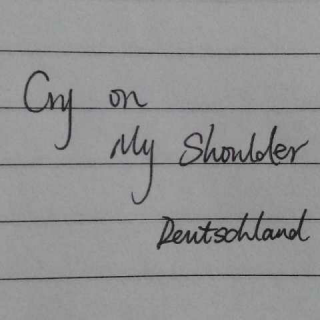 Cry on
My Shoulder
Deutschland